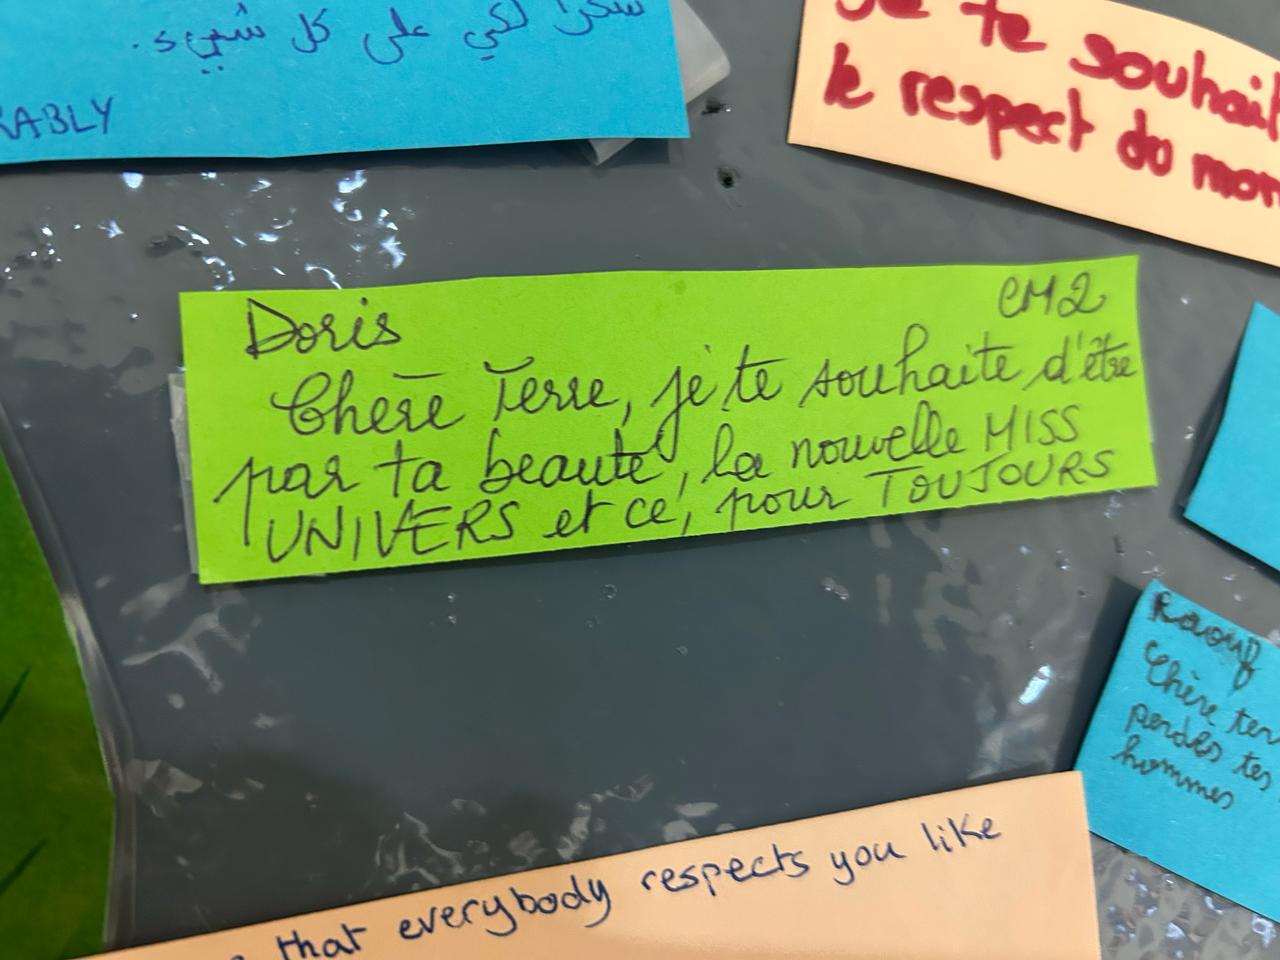 شكرا لكي على كل شيء.
RABLY
Je te souhait
le respect du mon
Doris CM2
Chère Terre, je te souhaite d'être
par ta beauté, la nouvelle MISS
UNIVERS et ce, pour TOUJOURS
Raouf
Chère ter
perdes tes
hommes
that everybody respects you like